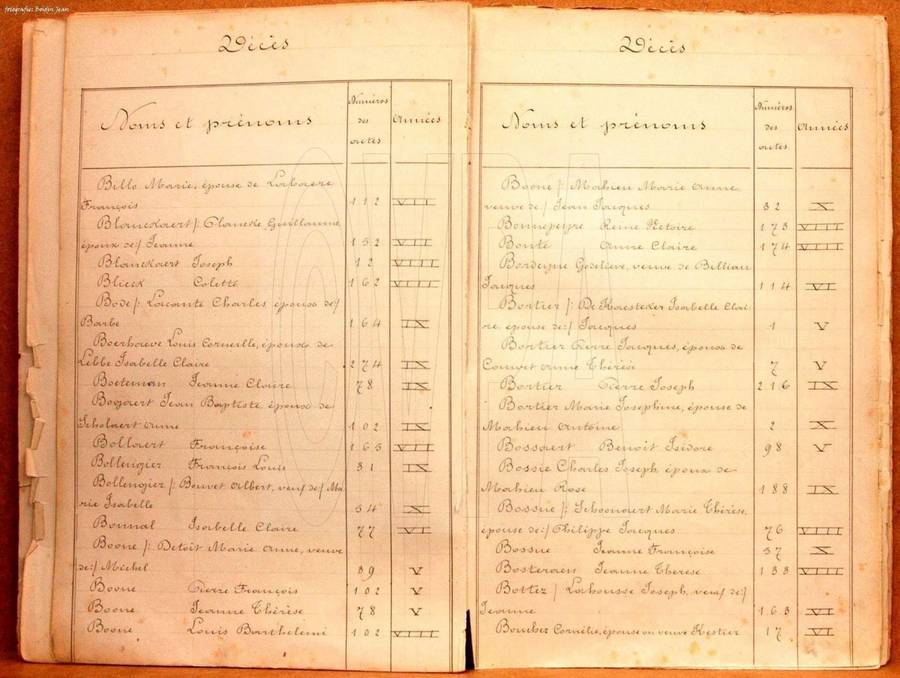 fotografies Boidin Jean
Décès
Noms et prénoms
Numéros
des
actes
Années
Billo Marie, épouse de Labaere
François 112 VII
Blanckaert /: Planeke Guillaume
époux de:/ Jeanne 152 VII
Blanckaert Joseph 12 VIII
Blieck Colette 162 VIII
Bode /: Lacante Charles époux de:/
Barbe 164 IX
Boerhaeve Louis Corneille, époux de
Lebbe Isabelle Claire 274 IX
Boeteman Jeanne Claire 78 IX
Bogaert Jean Baptiste, époux de
Scholaert Anne 102 IX
Bollaert Françoise 165 VII
Bollengier François Louis 31 IX
Bollengier /: Bouvet Albert, veuf de:/ Ma
rie Isabelle 54 X
Bonnal Isabelle Claire 77 VI
Boone /: Detoit Marie Anne, veuve
de:/ Michel 39 V
Boone Pierre François 102 V
Boone Jeanne Thérèse 78 V
Boone Louis Barthelemi 102 VIII
Décès
Noms et prénoms
Numéros
des
actes
Années
Boone /: Mahieu Marie Anne
veuve de:/ Jean Jacques 32 X
Bonnepeyre Reine Victoire 173 VIII
Bonte Anne Claire 174 VIII
Bordeyne Godelieve, veuve de Billiau
Jacques 114 VI
Bortier /: De Kaesteker Isabelle Clai
re, épouse de:/ Jacques 1 V
Bortier Pierre Jacques, époux de
Couvet Anne Thérèse 7 V
Bortier Pierre Joseph 216 IX
Bortier Marie Josephine, épouse de
Mahieu Antoine 2 X
Bossaert Benoit Isidore 98 V
Bossie Charles Joseph, époux de
Mahieu Rose 188 IX
Bossue /: Schoonaert Marie Thérèse,
épouse de:/ Philippe Jacques 76 VIII
Bossue Jeanne Françoise 37 X
Bosteraen Jeanne Therese 133 VIII
Bottez /: Lahousse Joseph, veuf de:/
Jeanne 163 VI
Bouchez Cornélie, épouse ou veuve Kestier 17 VI